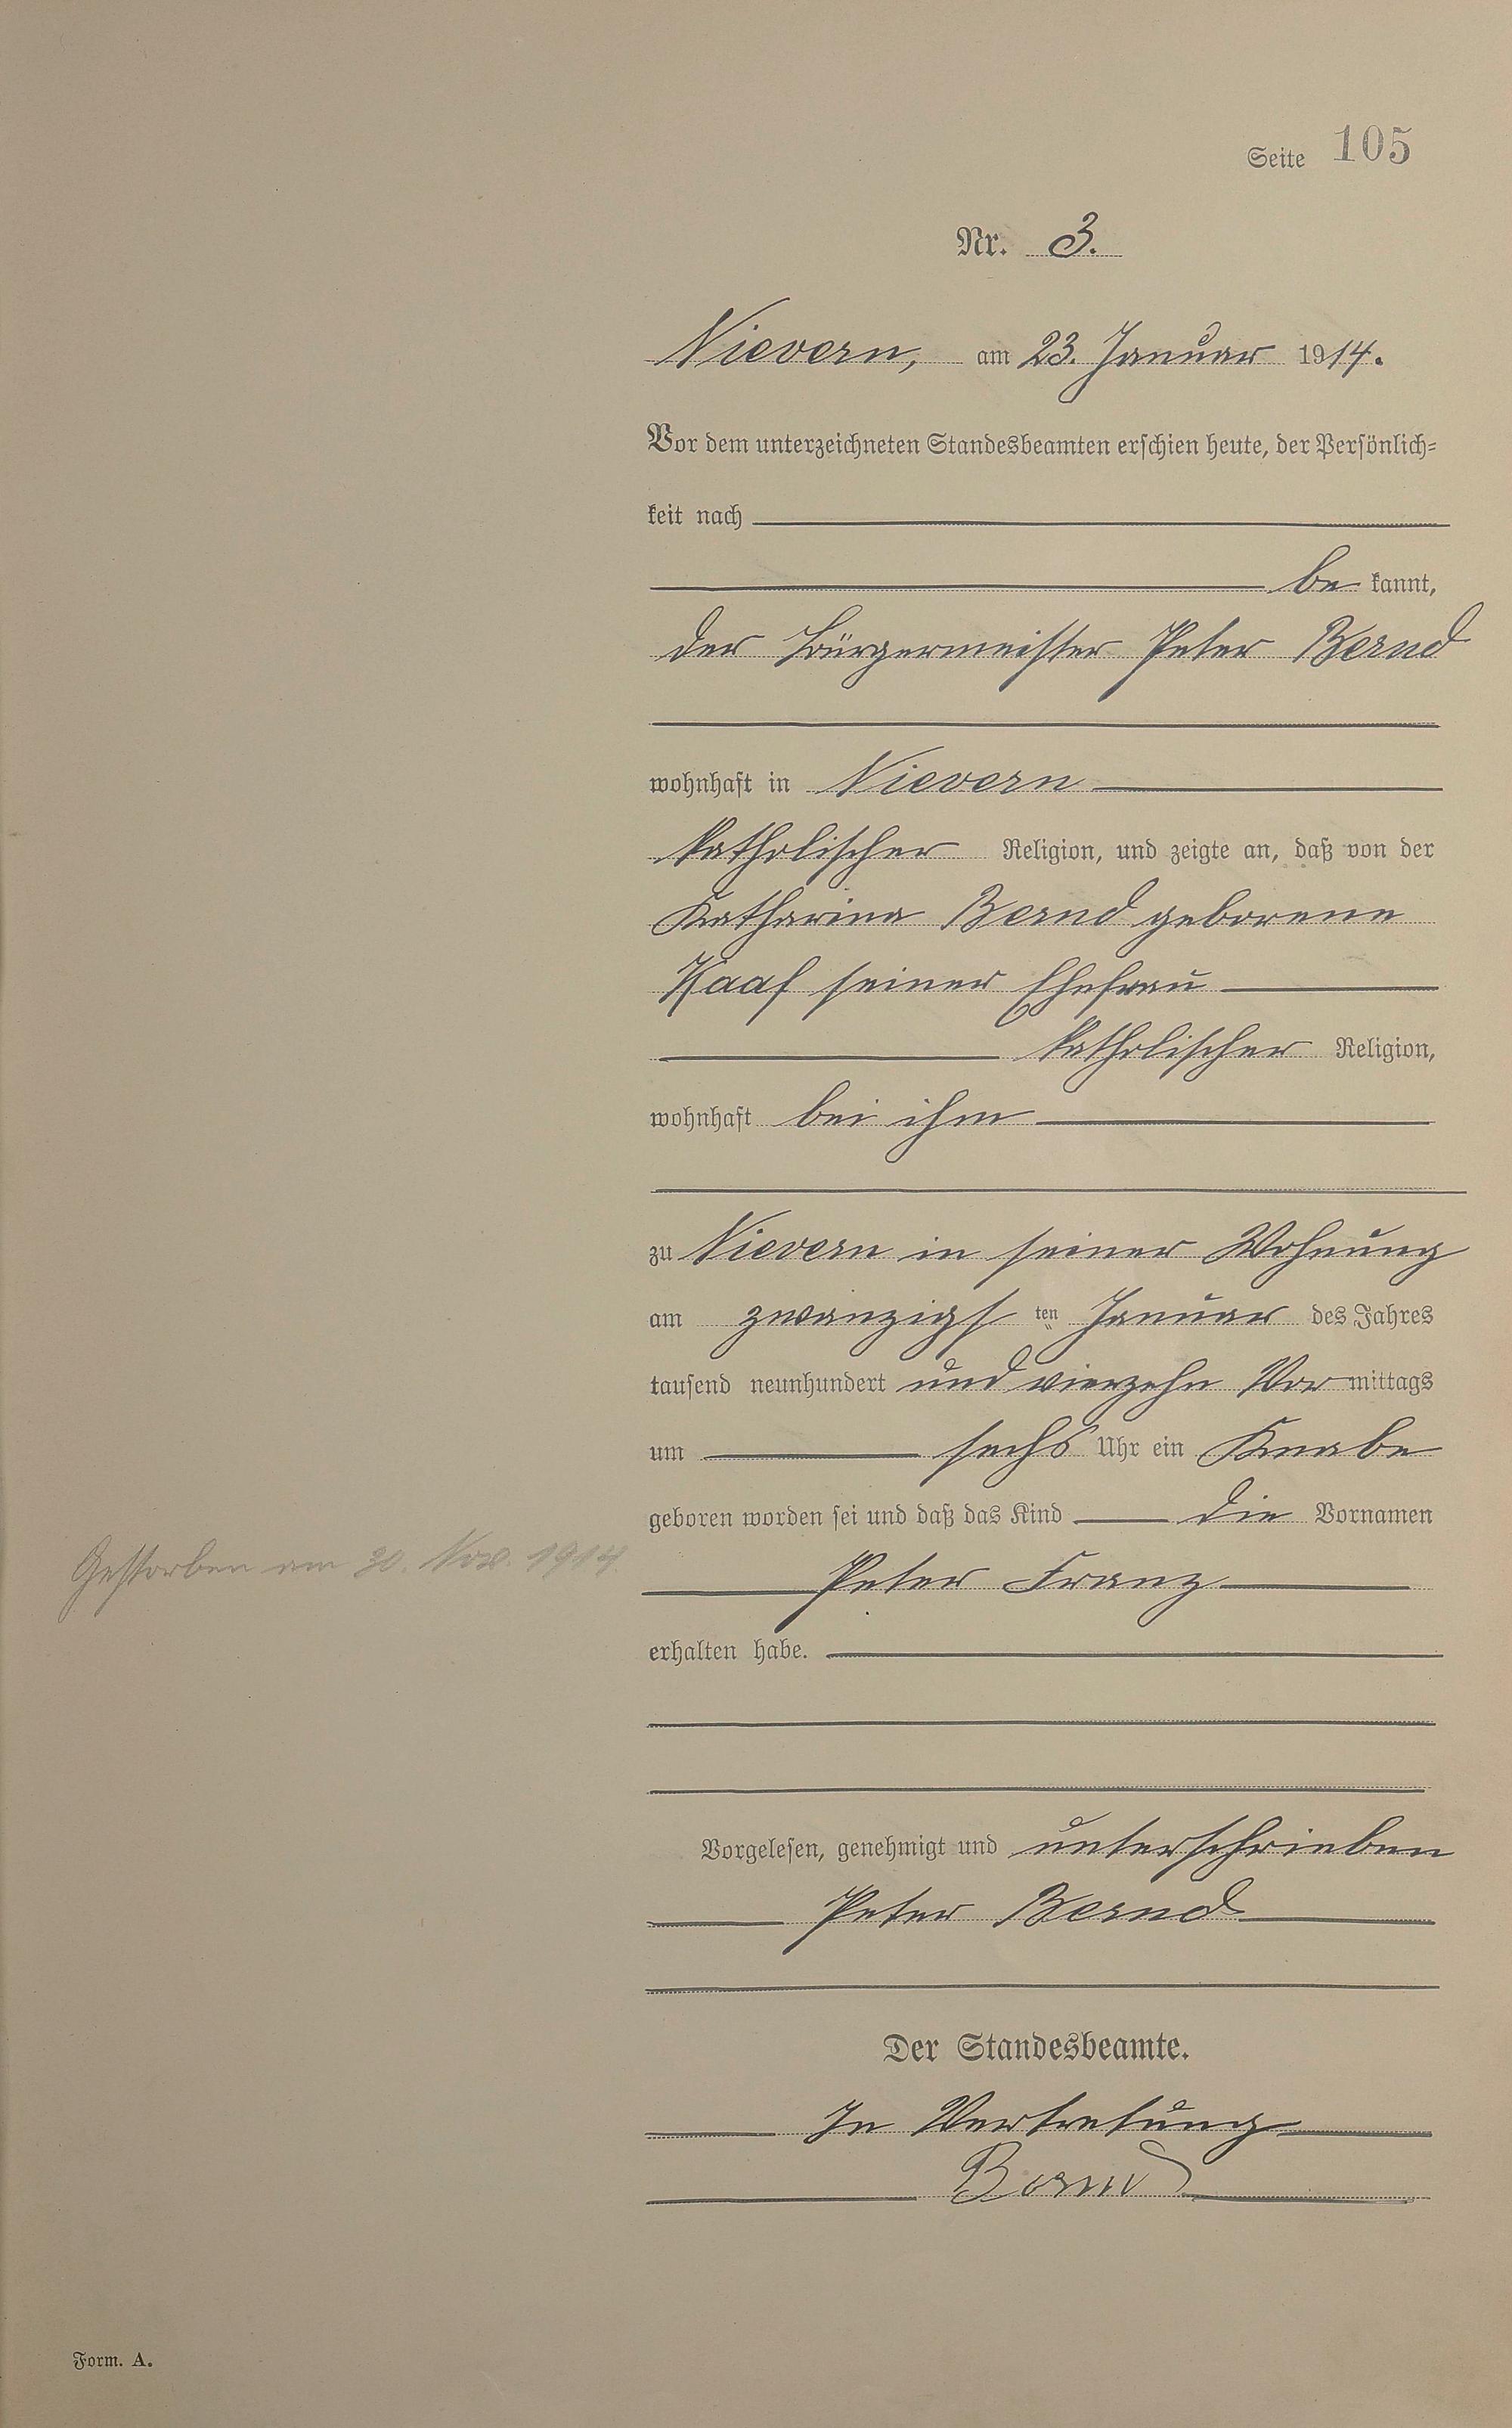 Seite 105
Nr. 3.
Nievern, am 23. Januar 1914.
Vor dem unterzeichneten Standesbeamten erschien heute, der Persönlich=
keit nach
be kannt,
der Bürgermeister Peter Bernd
wohnhaft in Nievern
katholischer Religion, und zeigte an, daß von der
Katharina Bernd geborene
Haaf seiner Ehefrau
katholischer Religion,
wohnhaft bei ihm
zu Nievern in seiner Wohnung
am zwanzigs ten Januar des Jahres
tausend neunhundert und vierzehn Vor mittags
um sechs Uhr ein Knabe
geboren worden sei und daß das Kind die Vornamen
Gestorben am 30. Nov. 1914.
Peter Franz
erhalten habe.
Vorgelesen, genehmigt und unterschrieben
Peter Bernd
Der Standesbeamte.
In Vertretung
Bernd
Form. A.